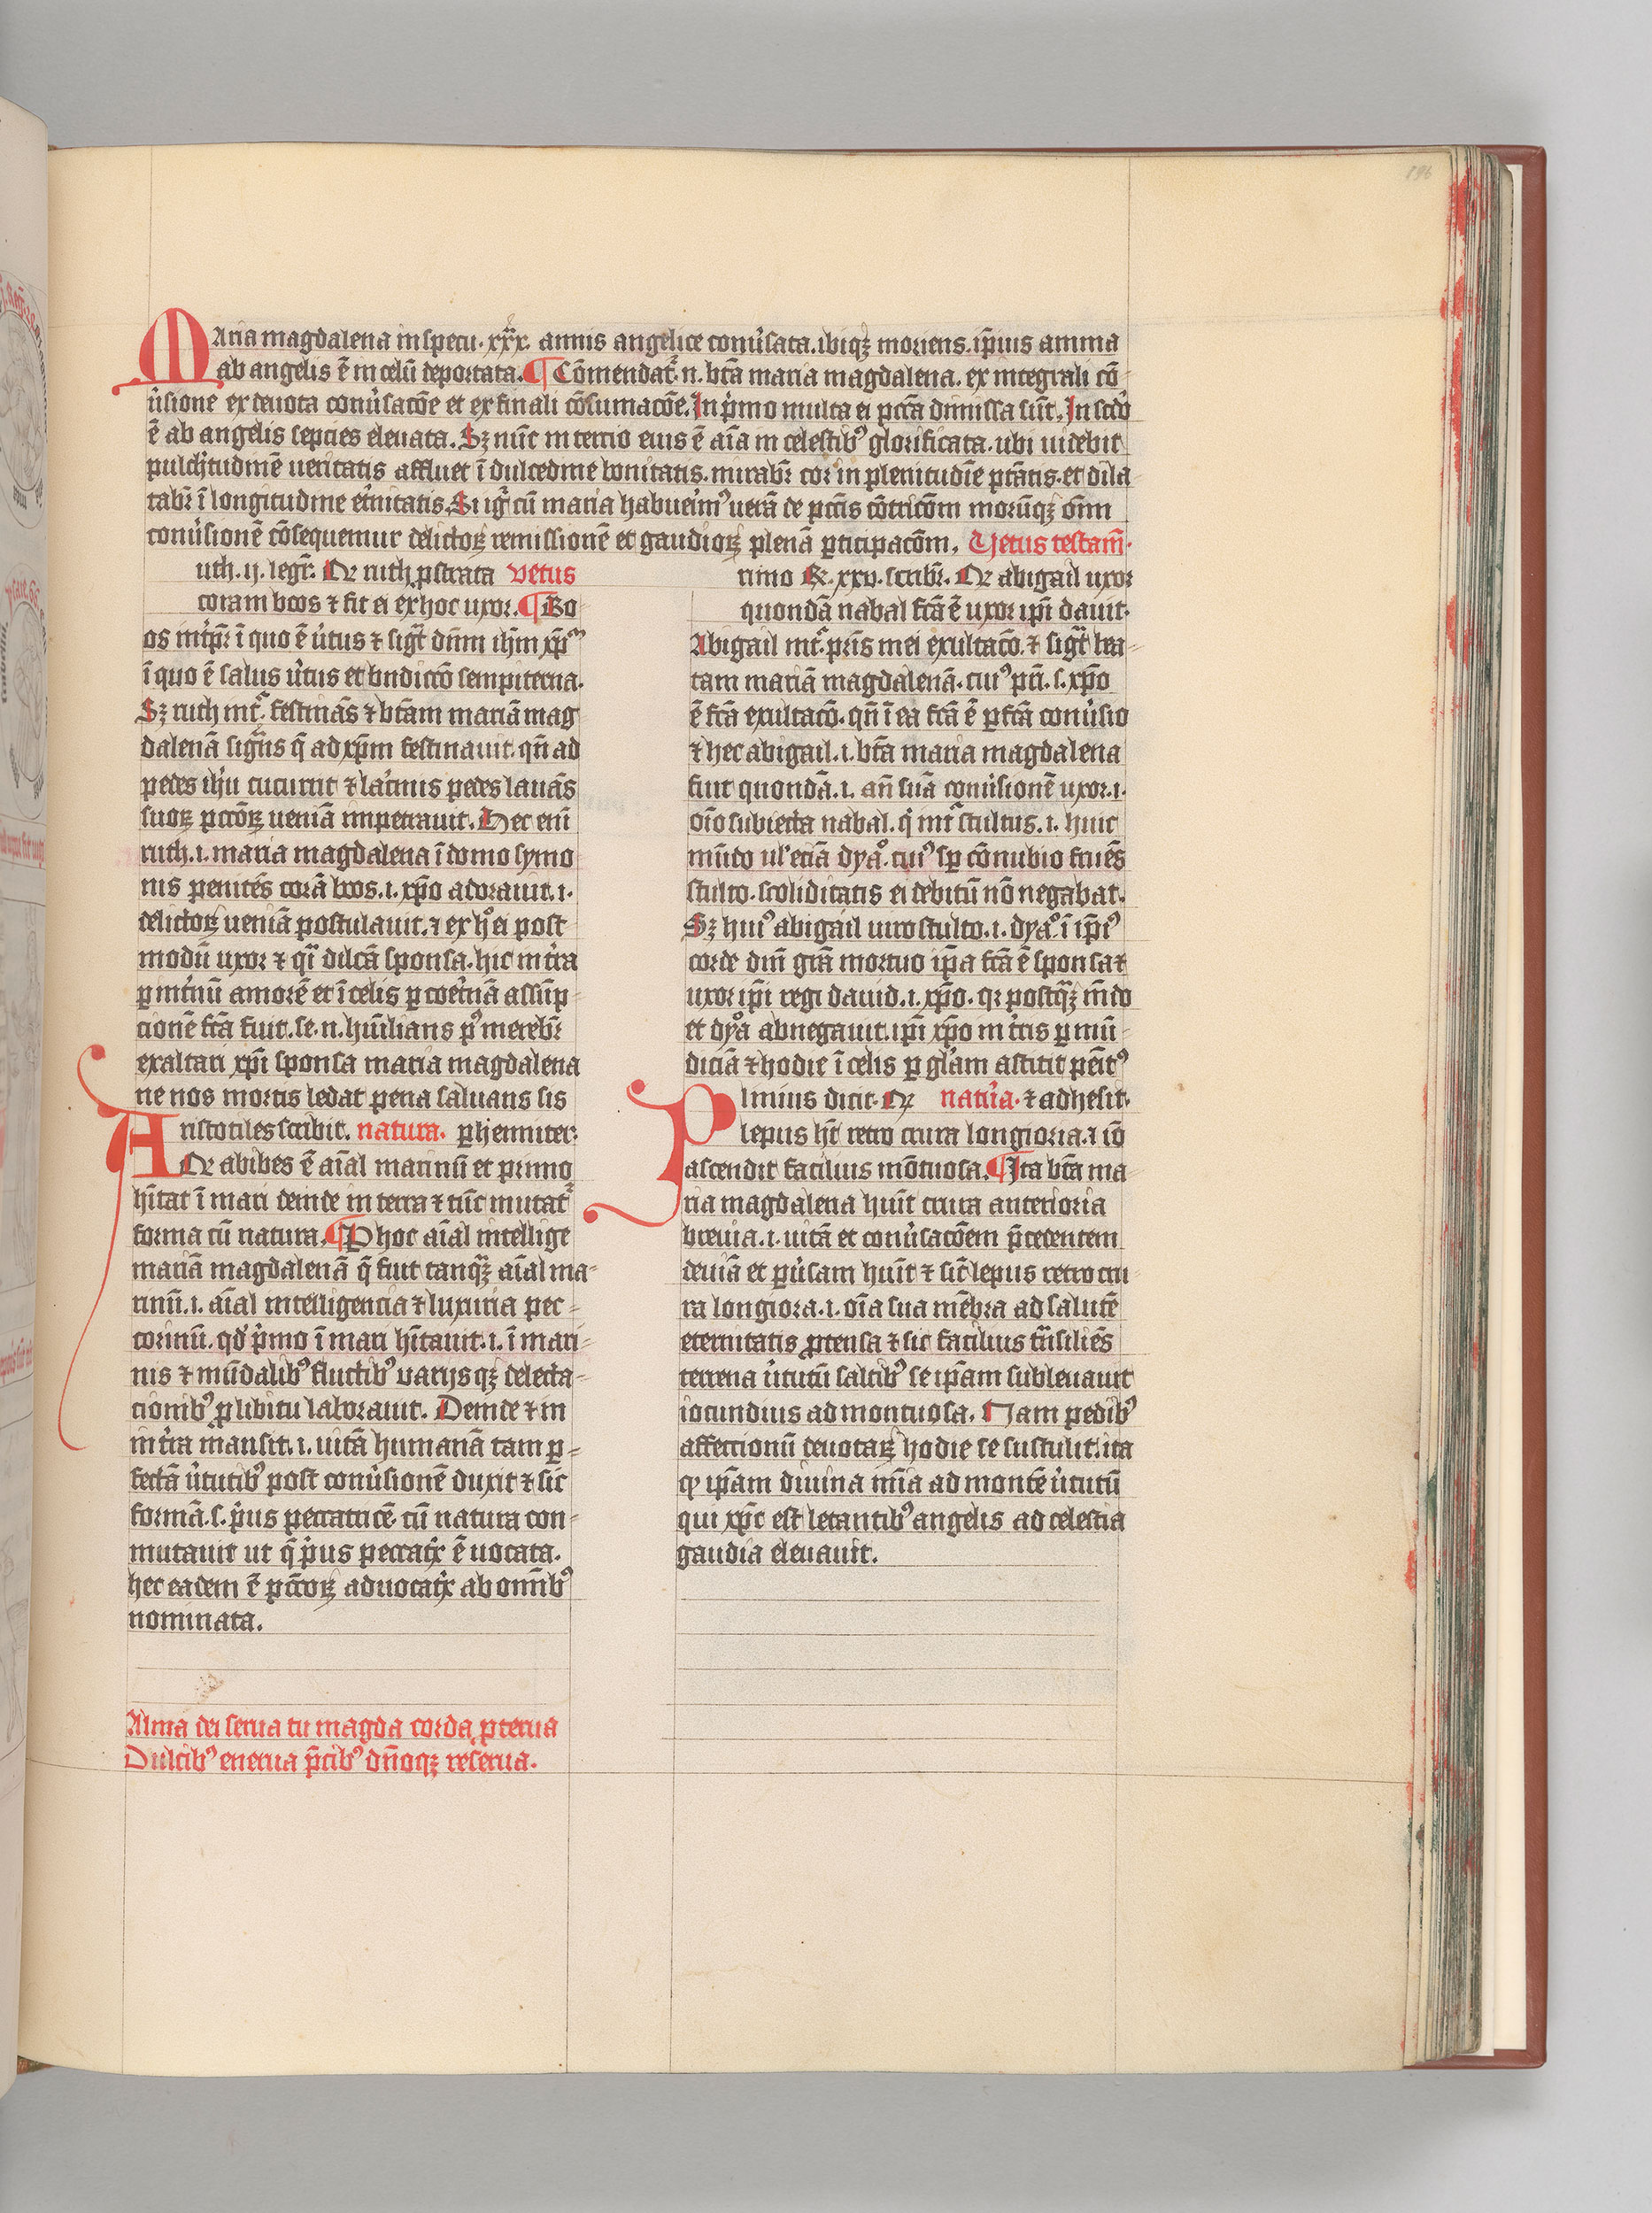 MAria magdalena in specu. xxx. annis angelice conu̓sata. ibiqꝫ moriens. ip̄ius anima
ab angelis ē in celū deportata. ¶ Cōmendat᷑. n. bt̄a maria magdalena. ex integrali cō
u̓sione ex deuota conu̓sacōe et ex finali cōsumacōe. In p̓mo multa ei pctā dimissa sūt. In scd̓o
ē ab angelis septies eleuata. Sꝫ nūc in tercio eius ē aīa in celestibꝰ glorificata. ubi uidebit
pulch̓tudinē ueritatis affluet ī dulcedine bonitatis. mirabr̄ cor in plenitudīe ptātis. et dila
tabr̄ ī longitudine et̓nitatis. Si igr̄ cū maria habueimꝰ uerā de pctīs cōtricōm morūqꝫ om̄i
conu̓sionē cōsequemur delictoꝝ remissionē et gaudioꝝ plenā ꝑticipacōm. Vetus testam̄.
uth. ij. legr̄. Qr ruth ꝓstrata vetus
coram boos ⁊ fit ei ex hoc uxor. ¶ Bo
os int̓pr̄ ī quo ē u̓tus ⁊ sigt̄ dn̄m ih̄m xp̄m
ī quo ē salus u̓tus et bndiccō sempiterna.
Sꝫ ruth int̄. festinās ⁊ bt̄am mariā mag
dalenā signās q̄ ad xp̄m festinauit. qn̄ ad
pedes ih̓u cucurrit ⁊ lac̓mis pedes lauās
suoꝝ pctōꝝ ueniā impetrauit. Hec eni
ruth. i. maria magdalena ī domo symo
nis penitēs corā boos. i. xp̄o adorauit. i.
delictoꝝ ueniā postulauit. ⁊ ex hͦ ei post
modū uxor ⁊ qͣi dilcā sponsa. hic in t̓ra
ꝑ int̓nū amorē et ī celis ꝑ coet̓nā assūp-
cionē fcā fuit. se. n. hūilians pꝰ merebr̄
exaltari xp̄i sponsa maria magdalena
ne nos mortis ledat pena saluans sis
ARistotiles scribit. natura. ꝑhenniter.
Qr abibes ē aīal marinū et primo
hītat ī mari deinde in terra ⁊ tūc mutat᷑
forma cū natura. ¶ P hoc aīal intellige
mariā magdalenā q̄ fuit tanqꝫ aīal ma-
rinū. i. aīal intelligencia ⁊ luxuria pec-
torinū. qd̓ p̓mo ī mari hītauit. i. ī mari-
nis ⁊ mūdalibꝰ fluctibꝰ varijsqꝫ delecta-
cionibꝰ ꝓ libitu laborauit. Deinde ⁊ in
in t̓ra mansit. i. uitā humanā tam ꝑ-
fectā u̓tutibꝰ post conu̓sionē duxit ⁊ sic
formā. s. p̓us peccatricē cū natura con-
mutauit ut q̄ p̓us peccat̓x ē uocata.
hec eadem ē pctōꝝ aduocat̓x ab omībꝰ
nominata.
Alma dei serua tu magda corda ꝓterua
Dulcibꝰ enerua p̄cibꝰ dn̄oqꝫ reserua.
rimo R. xxv. scribr̄. Qr abigail uxor
quondā nabal fcā ē uxor ip̄i dauit.
Abigail int̄. pr̄is mei exultacō. ⁊ sigt̄ bea-
tam mariā magdalenā. cuiꝰ pr̄i. s. xp̄o
ē fcā exultacō. qn̄ ī ea fcā ē ꝑfcā conu̓sio
⁊ hec abigail. i. bt̄a maria magdalena
fuit quondā. i. an̄ suā conu̓sionē uxor. i.
oīo subiecta nabal. q̓ int̄ stultus. i. huic
mūdo ul̓ eciā dyaͦ. cuiꝰ sꝑ cōnubio fruēs
stulto. scoliditatis ei debitū nō negabat.
Sꝫ huiꝰ abigail uiro stulto. i. dyaͦ. ī ip̄iꝰ
corde dn̄i grām mortuo ip̄a fcā ē sponsa ⁊
uxor ip̄i regi dauid. i. xp̄o. qr postqꝫ mūdo
et dyͦa abnegauit. ip̄i xp̄o in t̓ris ꝑ mū-
diciā ⁊ hodie ī celis ꝑ glām astitit penītꝰ
PLinius dicit. Qr natu̓a. ⁊ adhesit.
lepus ht̄ retro crura longiora. ⁊ iō
ascendit facilius mōtuosa. ¶ Ita bt̄a ma
ria magdalena huit crura anteriora
breuia. i. uitā et conu̓sacōem p̄cedentem
deuiā et ꝑu̓sam huīt ⁊ sic̄ lepus retro cru-
ra longiora. i. oīa sua mēbra ad salutē
eternitatis ꝓtensa ⁊ sic facilius trāsiliēs
terrena u̓tutū saltibꝰ se ip̄am subleuauit
iocundius ad montuosa. Nam pedibꝰ
affectionū deuotaꝝ hodie se sustulit. ita
qꝫ ip̄am diuina mīa ad montē u̓tutū
qui xp̄c est letantibꝰ angelis ad celestia
gaudia eleuauit.